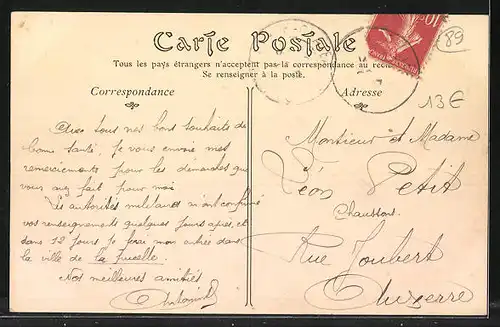 Carte Postale
Tous les pays étrangers n'acceptent pas la correspondance au
Se renseigner à la poste.
Correspondance
Adresse
89
13€
10
Avec tous nos bons souhaits de
bonne santé, Je vous envoi mes
remerciements pour les demandes que
vous avez fait pour moi
Les autorités militaires m'ont confirmé
vos renseignements quelques jours apres, et
dans 12 jours Je ferai mon entrée dans
la ville de la pucelle.
Nos meilleures amitiés
Monsieur et Madame
Léon Petit
Chaussons.
Rue Joubert
Auxerre